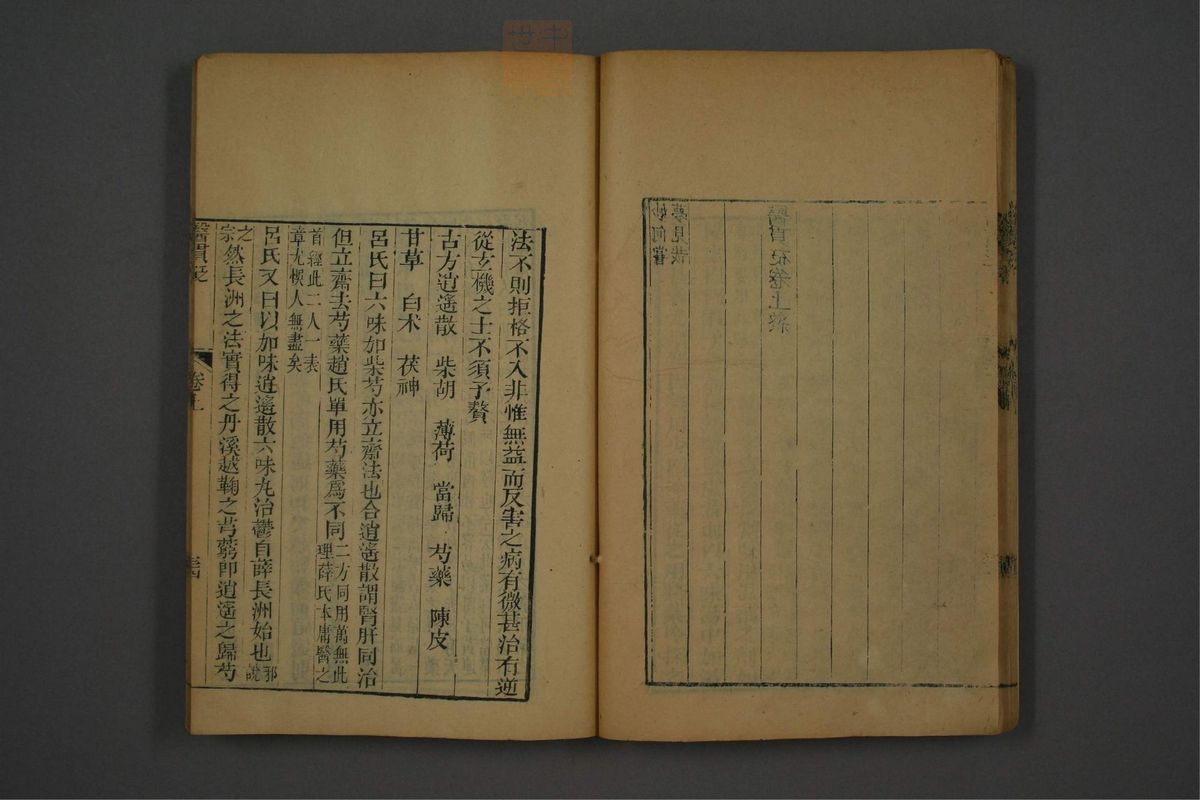 醫貫砭卷上終
夢見哉
妙何嘗
法不則拒格不入非惟無益而反害之病有微甚治有逆
從玄機之士不須予贅
古方逍遙散　柴胡　薄荷　當歸　芍藥　陳皮
甘草　白术　茯神
呂氏曰六味加柴芍亦立齋法也合逍遙散謂腎肝同治
但立齋去芍藥趙氏單用芍藥爲不同
二方同用萬無此
理薛氏本庸醫之
首經此二人一表
章尤悞人無盡矣
呂氏又曰以加味逍遙散六味丸治鬱自薛長洲始也
邪說
之宗
然長洲之法實得之丹溪越鞠之芎藭卽逍遙之歸芍
醫貫砭
卷上